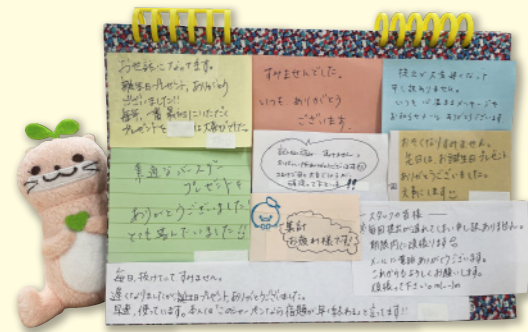 お世話になってます。
誕生日プレゼント、ありがとう
ございました!!
毎年、一番最初にいただく
プレゼントを は大喜びでした。
すみませんでした。
いつもありがとう
ございます。
提出が大変遅くなって
申し訳ありません。
いつも心温まるメッセージや
お知らせメール ありがとうございます
遅くなり すみません。
頑張って下さい!!
おそくなりすみません。
先日は、お誕生日プレゼント
ありがとうございました。
大事にします
素適なバースデー
プレゼントを
ありがとうございました!
とても喜んでいました!!
集計
お疲れ様です!
スタッフの皆様
毎回提出が遅れてしまい申し訳ありません。
期限内に頑張ります
メールや電話ありがとうございます。
これからもよろしくお願いします。
頑張って下さい。m(_ _)m
毎日、抜けてってすみません。
遅くなりましたが誕生日プレゼント、ありがとうございました。
早速、使っています。本人は「このシャーペンなら宿題が早く終わる」と言ってます!!